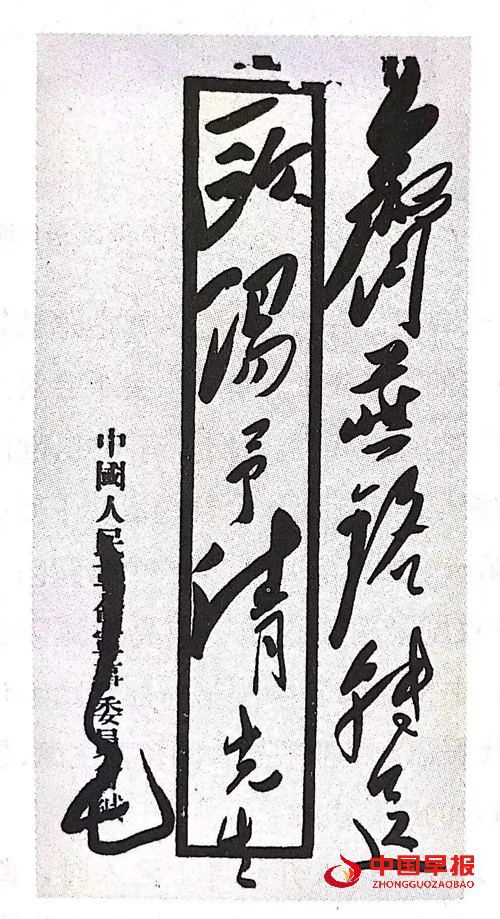 齊燕銘轉送
欧陽予倩先生
中國人民革命軍事委員會緘
毛
中国早报
ZHONGGUOZAOBAO